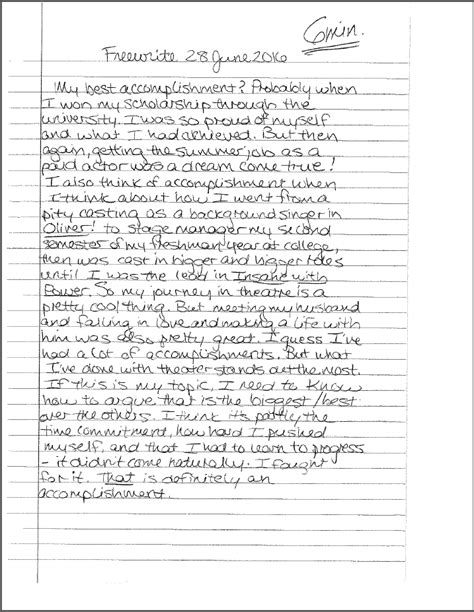 6min.
Freewrite 28 June 2016
My best accomplishment? Probably when
I won my scholarship through the
university. I was so proud of myself
and what I had achieved. But then
again, getting the summer job as a
paid actor was a dream come true!
I also think of accomplishment when
I think about how I went from a
pity casting as a background singer in
Oliver! to stage manager my second
semester of my freshman year at college,
then was cast in bigger and bigger roles
until I was the lead in Insane with
Power. So my journey in theatre is a
pretty cool thing. But meeting my husband
and falling in love and making a life with
him was also pretty great. I guess I've
had a lot of accomplishments. But what
I've done with theater stands out the most.
If this is my topic, I need to know
how to argue that is the biggest/best
over the others. I think it's partly the
time commitment, how hard I pushed
myself, and that I had to learn to progress
- it didn't come naturally. I fought
for it. That is definitely an
accomplishment.